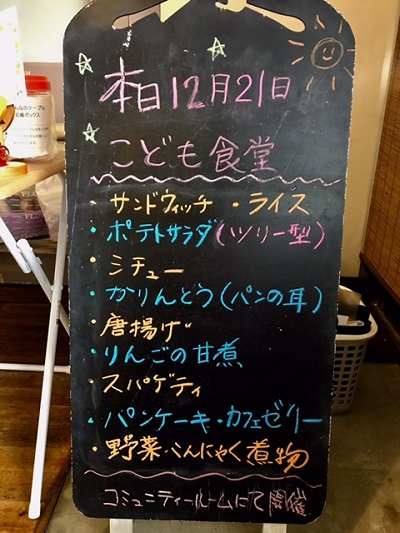 本日12月21日
こども食堂
サンドウィッチ・ライス
・ポテトサラダ(ツリー型)
・シチュー
・かりんとう(パンの耳)
・唐揚げ
・りんごの甘煮
・スパゲティ
・パンケーキ・カフェゼリー
・野菜・こんにゃく煮物
コミュニティールームにて開催